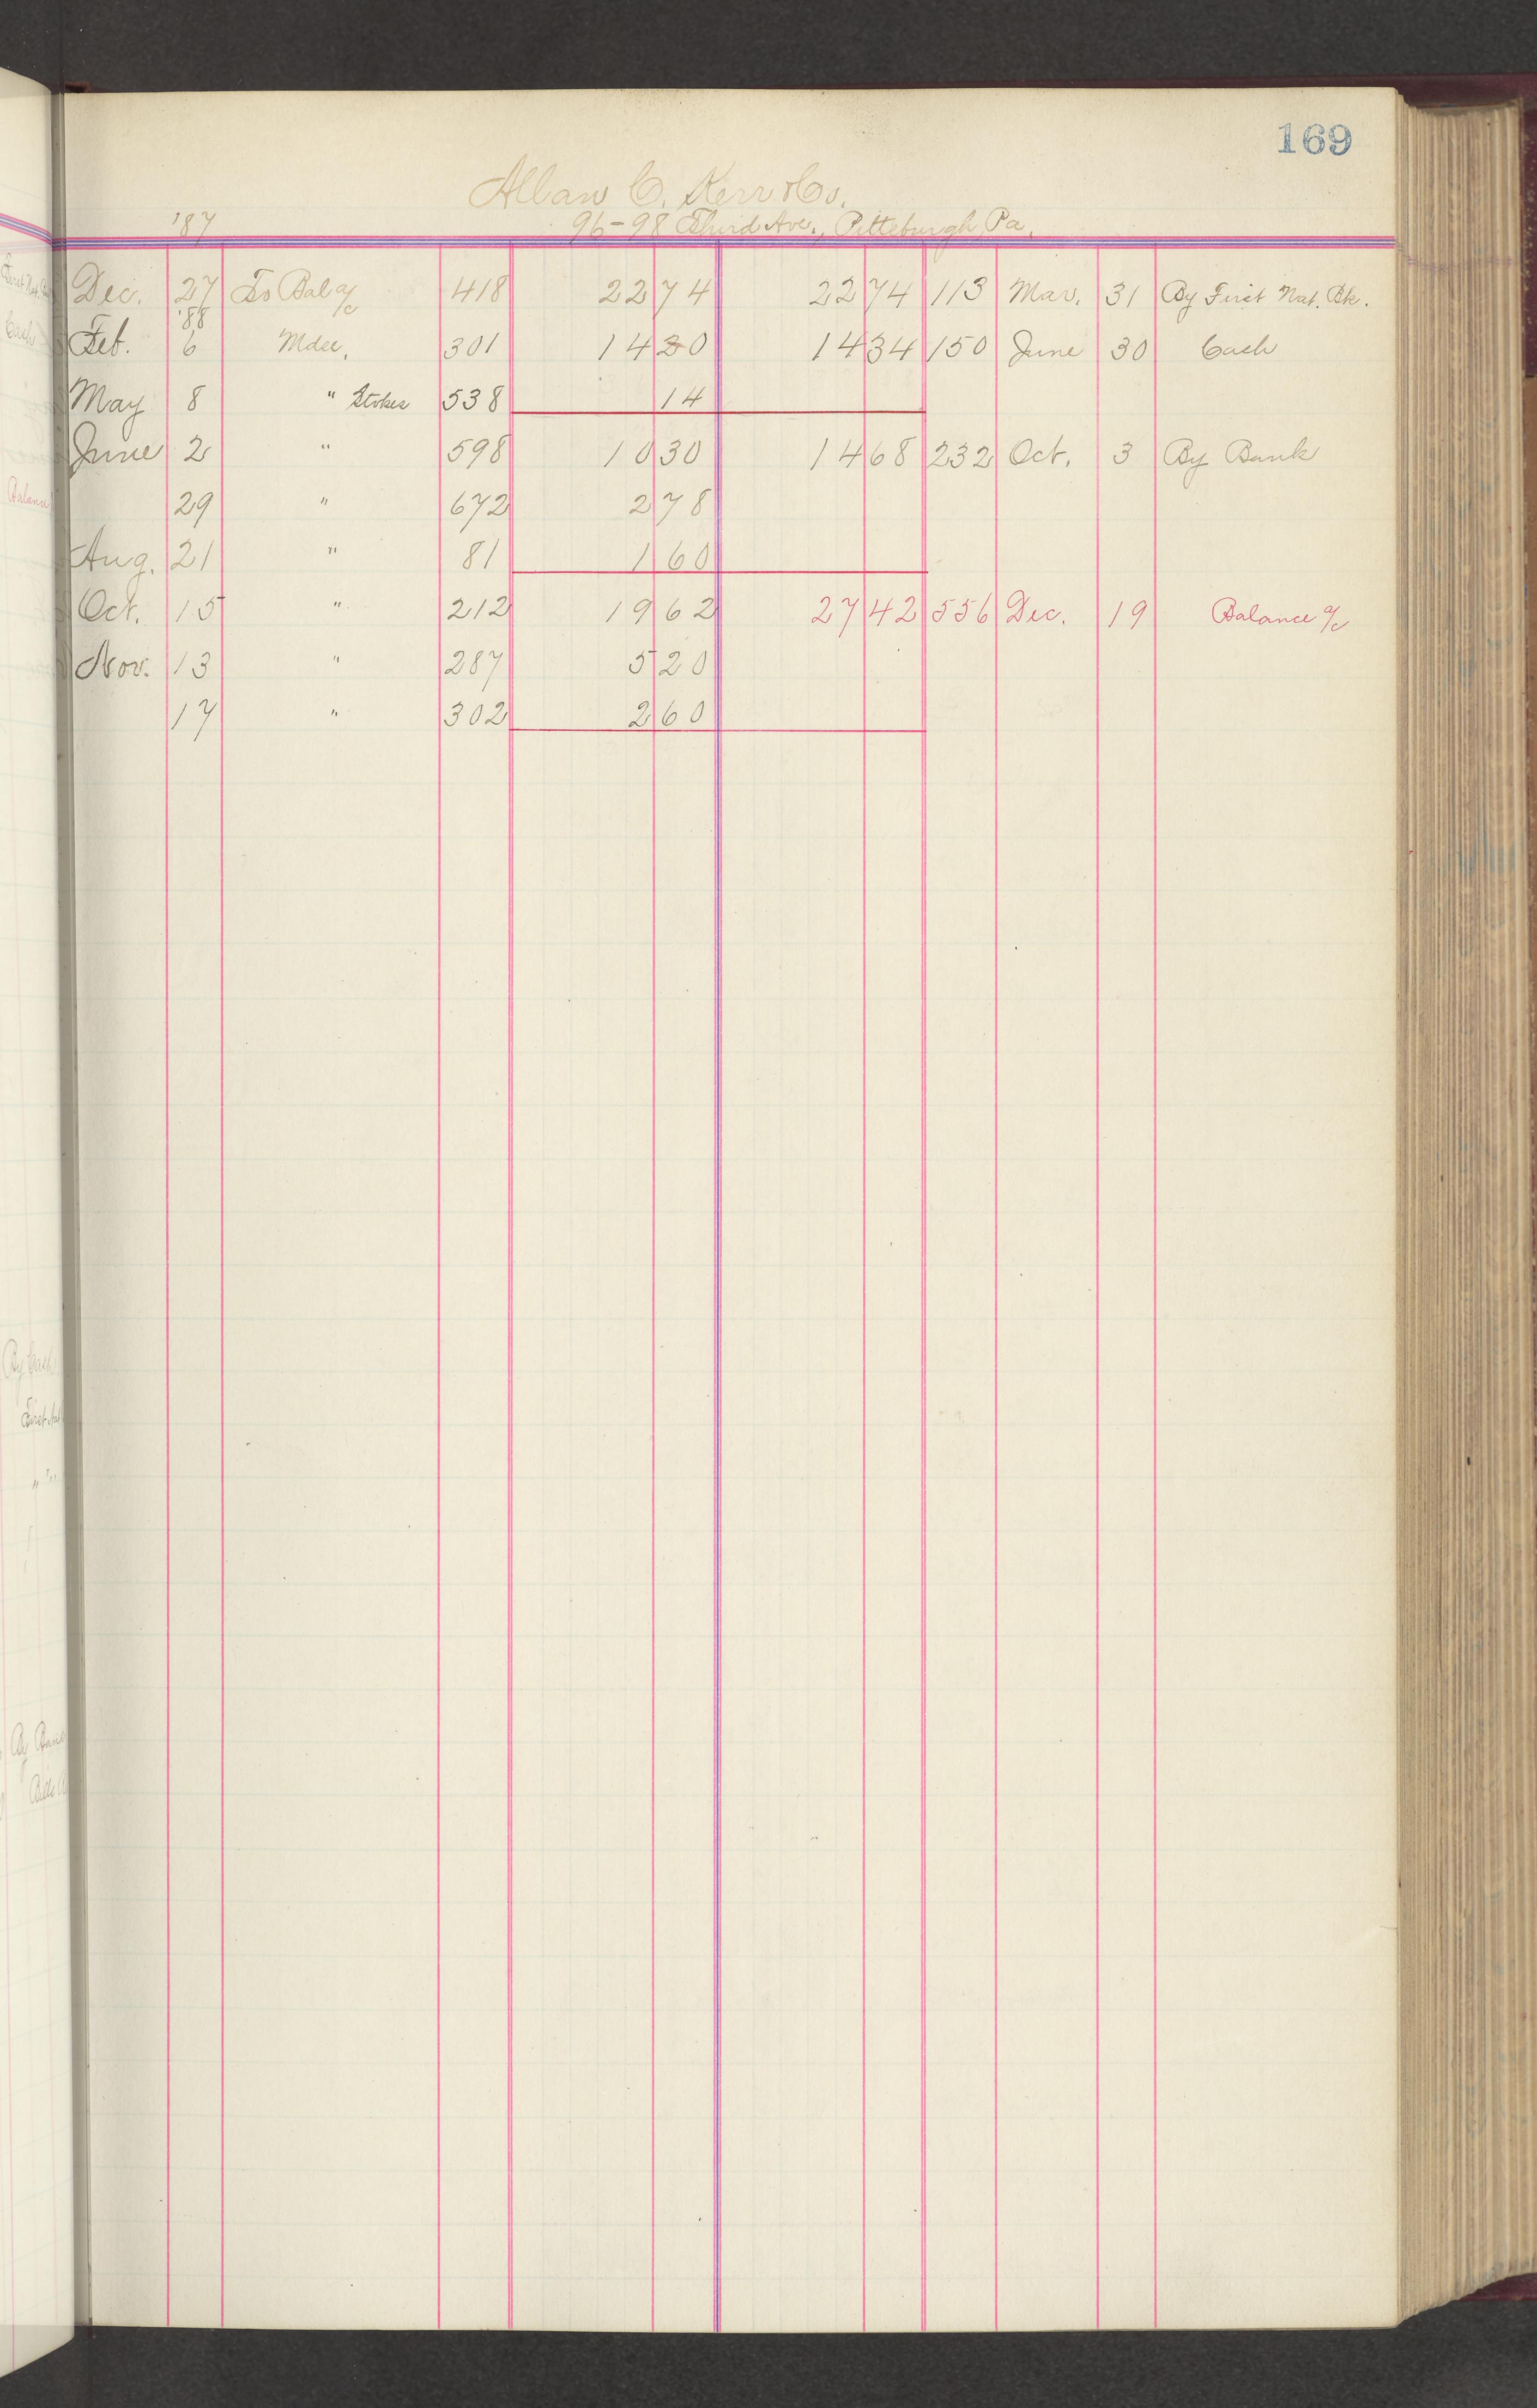 169
Allan C. Kerr & Co.
'87 96-98 Third Ave., Pittsburgh, Pa.
Dec. 27 To Bal a/c 418 22 74 22 74 113 Mar. 31 By First Nat. Bk.
'88
Feb. 6 Mdse. 301 14 20 14 34 150 June 30 Cash
May 8 " Stokes 538 14
June 2 " 598 10 30 14 68 232 Oct. 3 By Bank
29 " 672 2 78
Aug. 21 " 81 1 60
Oct. 15 " 212 19 62 27 42 556 Dec. 19 Balance a/c
Nov. 13 " 287 5 20
17 " 302 2 60
Cash
Balance
By Cash